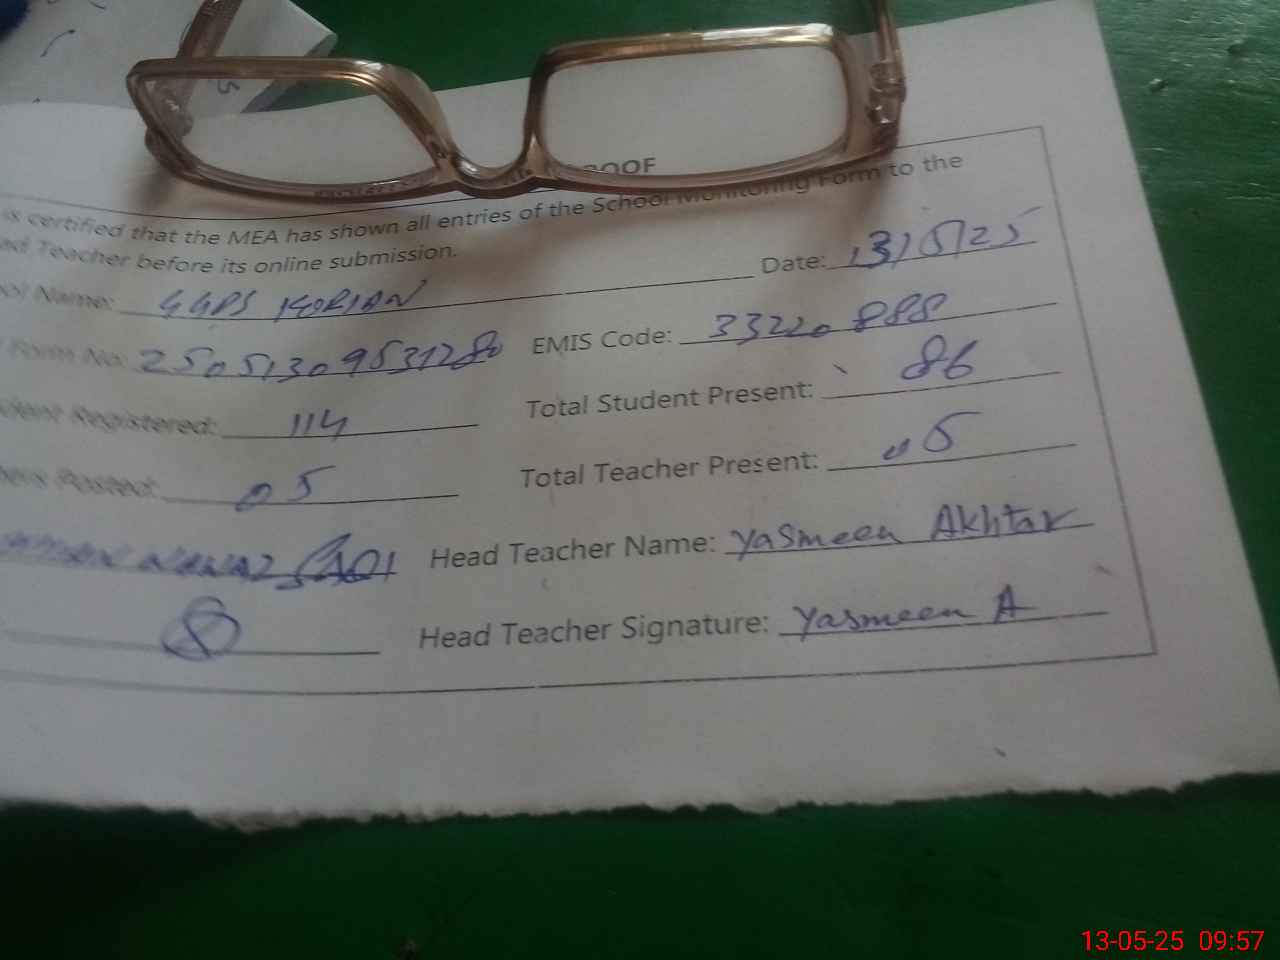 OOF
is certified that the MEA has shown all entries of the School Monitoring Form to the
ad Teacher before its online submission.
ool Name: GGPS KORIAN Date: 13/5/25
Form No: EMIS Code: 33220888
dent Registered: 114 Total Student Present: 86
hers Posted: 05 Total Teacher Present: 05
NAWAZ Head Teacher Name: Yasmeen Akhtar
Head Teacher Signature: Yasmeen A
13-05-25 09:57